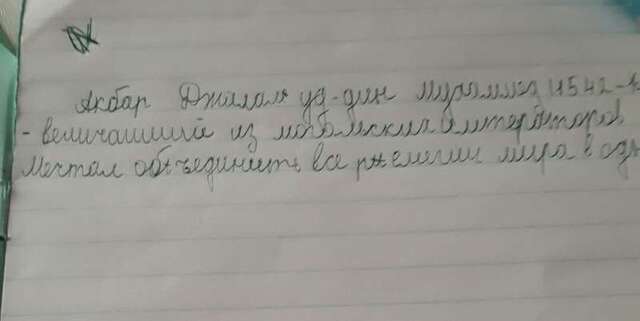 Акбар Джалал уд-дин Мухаммад (1542-
- величайший из могольских императоров
Мечтал объединить все религии мира в одн